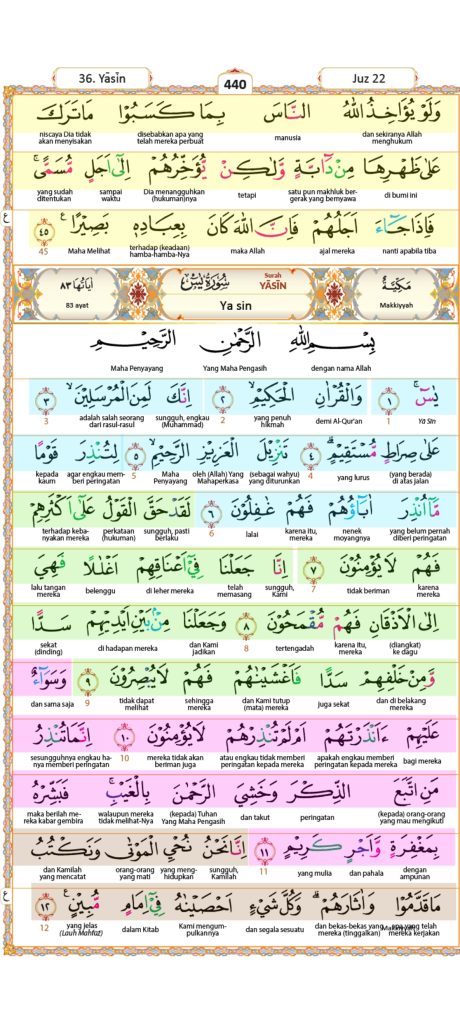 36. Yāsīn 440 Juz 22
وَلَوْ يُؤَاخِذُ اللّٰهُ النَّاسَ بِمَا كَسَبُوْا مَا تَرَكَ
dan sekiranya Allah menghukum manusia disebabkan apa yang telah mereka perbuat niscaya Dia tidak akan menyisakan
عَلٰى ظَهْرِهَا مِنْ دَاۤبَّةٍ وَّلٰكِنْ يُّؤَخِّرُهُمْ اِلٰٓى اَجَلٍ مُّسَمًّىۚ
di bumi ini satu pun makhluk bergerak yang bernyawa tetapi Dia menangguhkan (hukuman)nya sampai waktu yang sudah ditentukan
فَاِذَا جَاۤءَ اَجَلُهُمْ فَاِنَّ اللّٰهَ كَانَ بِعِبَادِهٖ بَصِيْرًا ࣖ ٤٥
nanti apabila tiba ajal mereka maka Allah terhadap (keadaan) hamba-hamba-Nya Maha Melihat 45
ع
مَكِّيَّةٌ Surah YĀSĪN سُوْرَةُ يٰسۤ اٰيَاتُهَا ٨٣
Makkiyyah Ya sin 83 ayat
بِسْمِ اللّٰهِ الرَّحْمٰنِ الرَّحِيْمِ
dengan nama Allah Yang Maha Pengasih Maha Penyayang
يٰسۤۚ ١ وَالْقُرْاٰنِ الْحَكِيْمِۙ ٢ اِنَّكَ لَمِنَ الْمُرْسَلِيْنَۙ ٣
Yā Sīn 1 demi Al-Qur'an yang penuh hikmah 2 sungguh, engkau (Muhammad) adalah salah seorang dari rasul-rasul 3
عَلٰى صِرَاطٍ مُّسْتَقِيْمٍۗ ٤ تَنْزِيْلَ الْعَزِيْزِ الرَّحِيْمِۙ ٥ لِتُنْذِرَ قَوْمًا
(yang berada) di atas jalan yang lurus 4 (sebagai wahyu) yang diturunkan oleh (Allah) Yang Mahaperkasa Maha Penyayang 5 agar engkau memberi peringatan kepada kaum
مَّآ اُنْذِرَ اٰبَاۤؤُهُمْ فَهُمْ غٰفِلُوْنَ ٦ لَقَدْ حَقَّ الْقَوْلُ عَلٰٓى اَكْثَرِهِمْ
yang belum pernah diberi peringatan nenek moyangnya karena itu, mereka lalai 6 sungguh, pasti berlaku perkataan (hukuman) terhadap kebanyakan mereka
فَهُمْ لَا يُؤْمِنُوْنَ ٧ اِنَّا جَعَلْنَا فِيْٓ اَعْنَاقِهِمْ اَغْلٰلًا فَهِيَ
karena mereka tidak beriman 7 sungguh, Kami telah memasang di leher mereka belenggu lalu tangan mereka
اِلَى الْاَذْقَانِ فَهُمْ مُّقْمَحُوْنَ ٨ وَجَعَلْنَا مِنْۢ بَيْنِ اَيْدِيْهِمْ سَدًّا
(diangkat) ke dagu karena itu, mereka tertengadah 8 dan Kami jadikan di hadapan mereka sekat (dinding)
وَّمِنْ خَلْفِهِمْ سَدًّا فَاَغْشَيْنٰهُمْ فَهُمْ لَا يُبْصِرُوْنَ ٩ وَسَوَاۤءٌ
dan di belakang mereka juga sekat dan Kami tutup (mata) mereka sehingga mereka tidak dapat melihat 9 dan sama saja
عَلَيْهِمْ ءَاَنْذَرْتَهُمْ اَمْ لَمْ تُنْذِرْهُمْ لَا يُؤْمِنُوْنَ ١٠ اِنَّمَا تُنْذِرُ
bagi mereka apakah engkau memberi peringatan kepada mereka atau engkau tidak memberi peringatan kepada mereka mereka tidak akan beriman juga 10 sesungguhnya engkau hanya memberi peringatan
مَنِ اتَّبَعَ الذِّكْرَ وَخَشِيَ الرَّحْمٰنَ بِالْغَيْبِۚ فَبَشِّرْهُ
(kepada) orang-orang yang mau mengikuti peringatan dan takut (kepada) Tuhan Yang Maha Pengasih walaupun mereka tidak melihat-Nya maka berilah mereka kabar gembira
بِمَغْفِرَةٍ وَّاَجْرٍ كَرِيْمٍ ١١ اِنَّا نَحْنُ نُحْيِ الْمَوْتٰى وَنَكْتُبُ
dengan ampunan dan pahala yang mulia 11 sungguh, Kamilah yang menghidupkan orang-orang yang mati dan Kamilah yang mencatat
مَا قَدَّمُوْا وَاٰثَارَهُمْۗ وَكُلَّ شَيْءٍ اَحْصَيْنٰهُ فِيْٓ اِمَامٍ مُّبِيْنٍ ࣖ ١٢
apa yang telah mereka kerjakan dan bekas-bekas yang mereka (tinggalkan) dan segala sesuatu Kami mengumpulkannya dalam Kitab yang jelas (Lauh Mahfūẓ) 12
ع